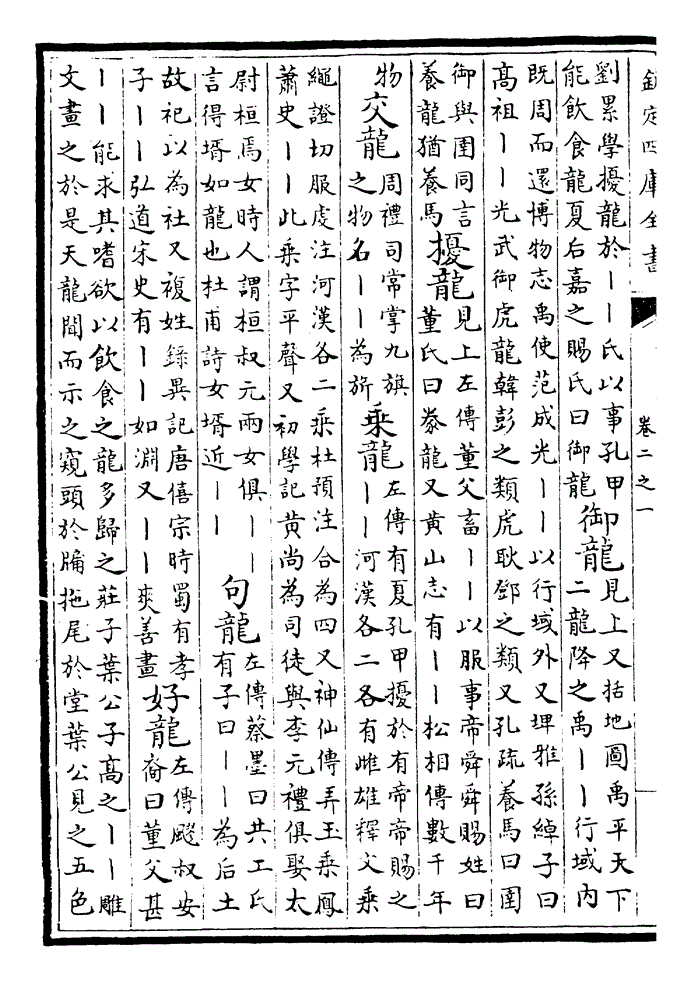 欽定四庫全書 卷二之一
劉累學擾龍於丨丨氏以事孔甲
能飲食龍夏后嘉之賜氏曰御龍
御龍
見上又括地圖禹平天下
二龍降之禹丨丨行域内
既周而還博物志禹使范成光丨丨以行域外又埤雅孫綽子曰
高祖丨丨光武御虎龍韓彭之類虎耿鄧之類又孔疏養馬曰圉
御與圉同言
養龍猶養馬
擾龍
見上左傳董父畜丨丨以服事帝舜舜賜姓曰
董氏曰豢龍又黄山志有丨丨松相傳數千年
物
交龍
周禮司常掌九旗
之物名丨丨為旂
乘龍
左傳有夏孔甲擾於有帝帝賜之
丨丨河漢各二各有雌雄釋文乘
繩證切服虔注河漢各二乘杜預注合為四又神仙傳弄玉乘鳳
蕭史丨丨此乘字平聲又初學記黄尚為司徒與李元禮俱娶太
尉桓焉女時人謂桓叔元兩女俱丨丨
言得壻如龍也杜甫詩女壻近丨丨
句龍
左傳蔡墨曰共工氏
有子曰丨丨為后土
故祀以為社又複姓錄異記唐僖宗時蜀有孝
子丨丨弘道宋史有丨丨如淵又丨丨爽善畫
好龍
左傳飂叔安
裔曰董父甚
丨丨能求其嗜欲以飲食之龍多歸之莊子葉公子高之丨丨雕
文畫之於是天龍聞而示之窺頭於牖拖尾於堂葉公見之五色